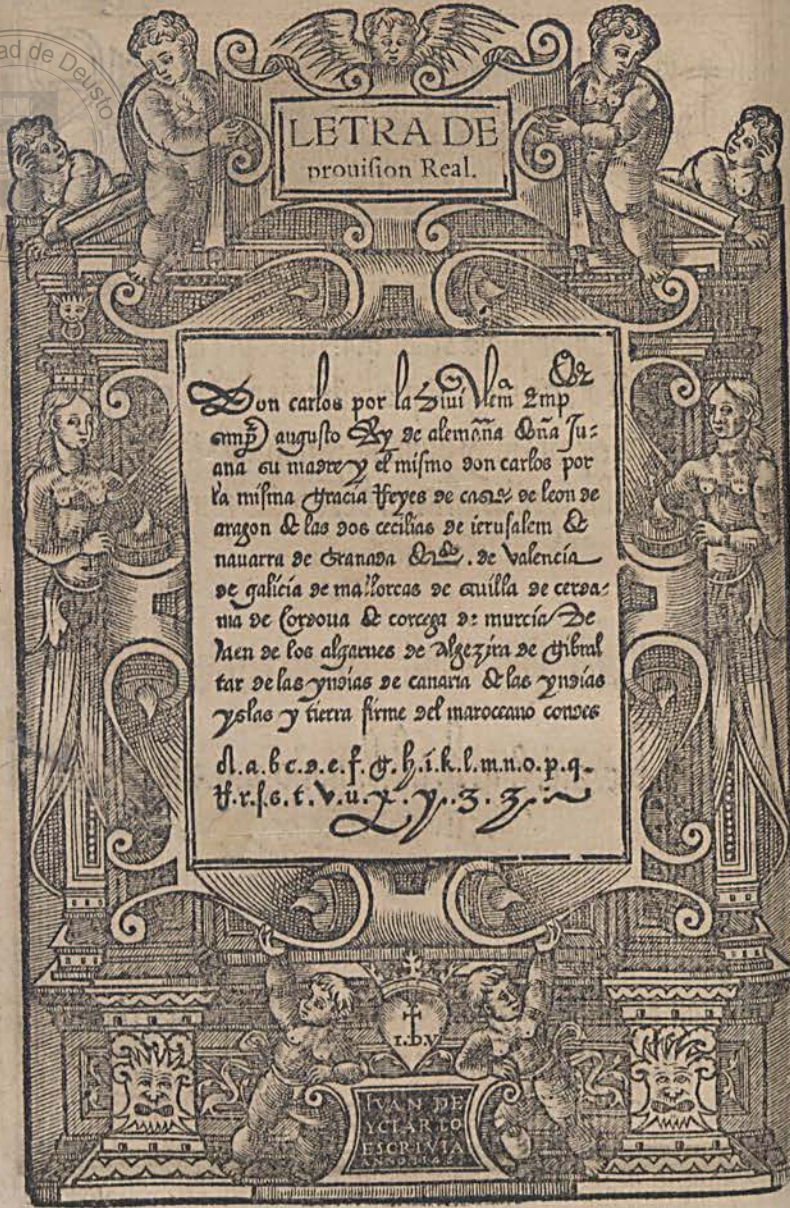 ad de Deusto
LETRA DE
prouision Real.
Don carlos por la Diui clem Emp
semp augusto Rey de alemaña Doña Ju:
ana su madre y el mismo don carlos por
la misma gracia Reyes de cast. de leon de
aragon de las dos cecilias de ierusalem de
nauarra de Granada de . de valencia
de galicia de mallorcas de seuilla de cerda:
nia de Cordoua de corcega de murcia De
Jaen de los algarues de Algezira de Gibral
tar de las yndias de canaria de las yndias
yslas y tierra firme del maroceano condes
A.a.b c.d.e.f.g.h.i.k.l.m.n.o.p.q.
R.r.s.s.t.v.u.x.y.z.z.
I.D.Y
IVAN DE
YCIAR LO
ESCRIVIA